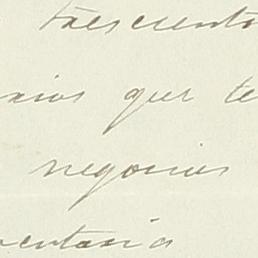 trescento
arios que te
negocios
mentario